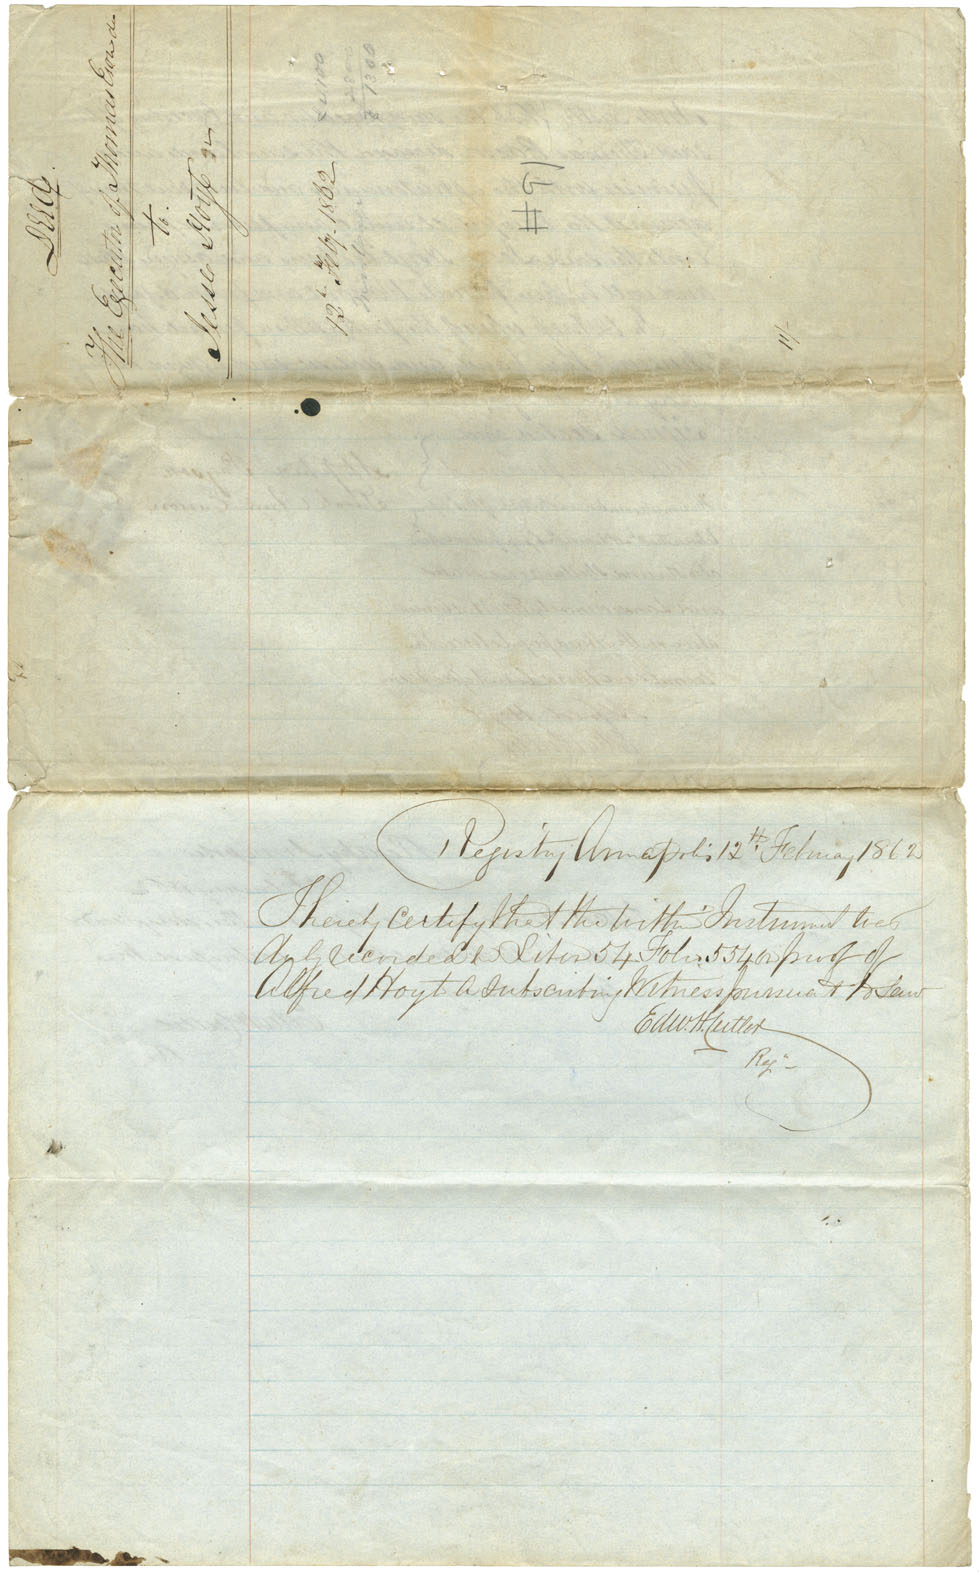 Deed
The Executor of Thomas
to
Jesse Hoyt
12th Feby. 1862
# 15
11/-
Registry Annapolis 12th February 1862
I hereby certify that the within Instrument was
duly recorded in Liber 54 Folio 554 on proof of
Alfred Hoyt a subscribing Witness pursuant to Law
Edw. H. Cutler
Regr